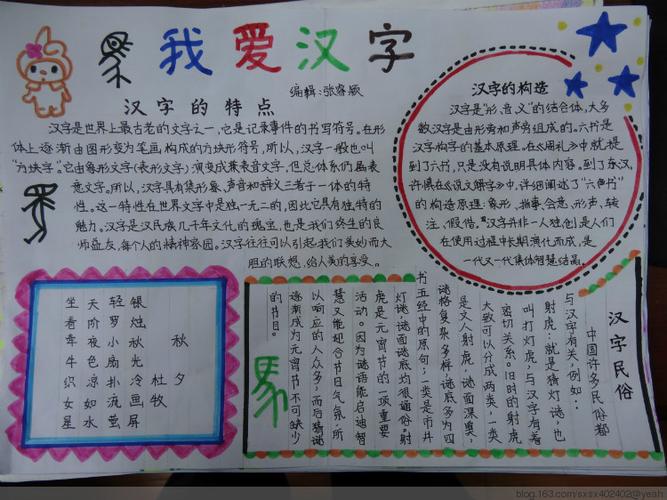 我爱汉字
编辑:张
汉字的特点
汉字是世界上最古老的文字之一,它是记录事件的书写符号。在形
体上逐渐由图形变为笔画构成的方块形符号。所以,汉字一般也叫
“方块字”。它由象形文字(表形文字)演变成兼表音文字,但总体系仍属表
意文字。所以,汉字具有集形象、声音和辞义三者于一体的特
性。这一特性在世界文字中是独一无二的,因此它具有独特的
魅力。汉字是汉民族几千年文化的瑰宝,也是我们终生的良
师益友,每个人的精神家园。汉字往往可以引起我们美妙而大
胆的联想,给人美的享受。
汉字的构造
汉字是“形、音、义”的结合体,大多
数汉字是由形旁和声旁组成的。六书是
汉字构字的基本原理,在《周礼》中就提
到了六书,只是没有说明具体内容。到了东汉,
许慎在《说文解字》中,详细阐述了“六书”
的构造原理:象形、指事、会意、形声、转
注、假借。汉字并非一人独创,是人们
在使用过程中长期演化而成,是
一代又一代集体智慧结晶。
秋夕
杜牧
银烛秋光冷画屏
轻罗小扇扑流萤
天阶夜色凉如水
坐看牵牛织女星
汉字民俗
中国许多民俗都
与汉字有关,例如:
射虎,就是猜灯谜,也
叫打灯虎,与汉字有着
密切关系。旧时的射虎
大致可以分成两类,一类
是文人射虎,谜面深奥,
谜格复杂多样,谜底多为四
书五经中的原句;一类是市井
灯谜,谜面谜底均很通俗。射
虎是元宵节的一项重要
活动。因为谜语能启迪智
慧又能迎合节日气氛,所
以响应的人众多,而后猜谜
逐渐成为元宵节不可缺少
的节目。
blog.163.com/sxsx402402@yeah